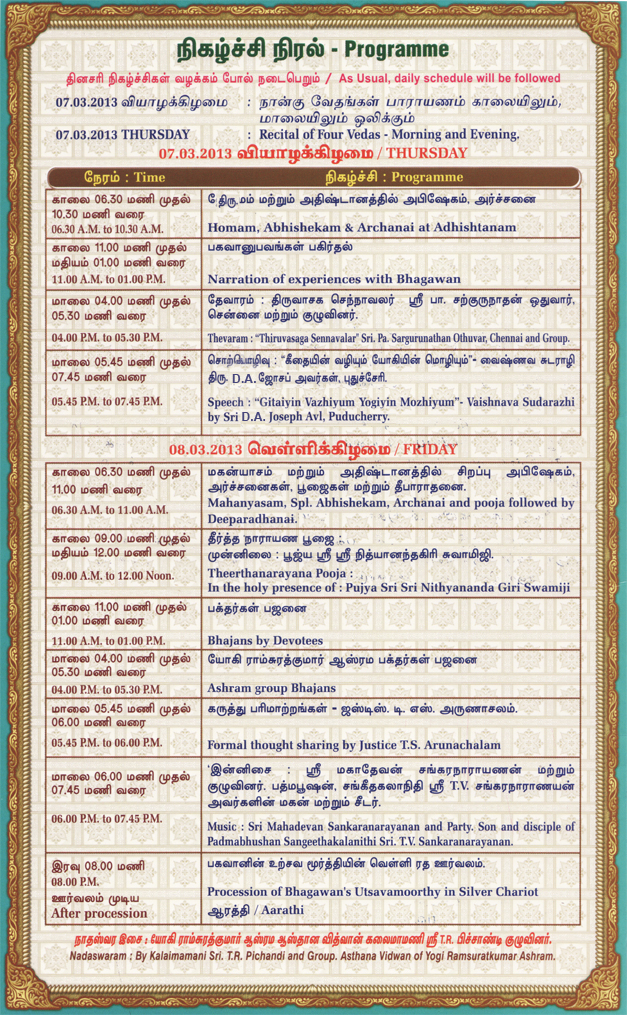 நிகழ்ச்சி நிரல் - Programme
தினசரி நிகழ்ச்சிகள் வழக்கம் போல் நடைபெறும் / As Usual, daily schedule will be followed
07.03.2013 வியாழக்கிழமை : நான்கு வேதங்கள் பாராயணம் காலையிலும்,
மாலையிலும் ஒலிக்கும்
07.03.2013 THURSDAY : Recital of Four Vedas - Morning and Evening.
07.03.2013 வியாழக்கிழமை / THURSDAY
நேரம் : Time நிகழ்ச்சி : Programme
காலை 06.30 மணி முதல்
10.30 மணி வரை
06.30 A.M. to 10.30 A.M.
மற்றும் அதிஷ்டானத்தில் அபிஷேகம், அர்ச்சனை
Homam, Abhishekam & Archanai at Adhishtanam
காலை 11.00 மணி முதல்
மதியம் 01.00 மணி வரை
11.00 A.M. to 01.00 P.M.
பகவானுபவங்கள் பகிர்தல்
Narration of experiences with Bhagawan
மாலை 04.00 மணி முதல்
05.30 மணி வரை
04.00 P.M. to 05.30 P.M.
தேவாரம் : திருவாசக செந்நாவலர் ஸ்ரீ பா. சற்குருநாதன் ஓதுவார்,
சென்னை மற்றும் குழுவினர்.
Thevaram : "Thiruvasaga Sennavalar" Sri. Pa. Sargurunathan Othuvar, Chennai and Group.
மாலை 05.45 மணி முதல்
07.45 மணி வரை
05.45 P.M. to 07.45 P.M.
சொற்பொழிவு : "கீதையின் வழியும் யோகியின் மொழியும்"- வைஷ்ணவ சுடராழி
திரு. D.A. ஜோசப் அவர்கள், புதுச்சேரி.
Speech : "Gitaiyin Vazhiyum Yogiyin Mozhiyum"- Vaishnava Sudarazhi
by Sri D.A. Joseph Avl, Puducherry.
08.03.2013 வெள்ளிக்கிழமை / FRIDAY
காலை 06.30 மணி முதல்
11.00 மணி வரை
06.30 A.M. to 11.00 A.M.
மகன்யாசம் மற்றும் அதிஷ்டானத்தில் சிறப்பு அபிஷேகம்,
அர்ச்சனைகள், பூஜைகள் மற்றும் தீபாராதனை.
Mahanyasam, Spl. Abhishekam, Archanai and pooja followed by
Deeparadhanai.
காலை 09.00 மணி முதல்
மதியம் 12.00 மணி வரை
09.00 A.M. to 12.00 Noon.
தீர்த்த நாராயண பூஜை :
முன்னிலை : பூஜ்ய ஸ்ரீ ஸ்ரீ நித்யானந்தகிரி சுவாமிஜி.
Theerthanarayana Pooja :
In the holy presence of : Pujya Sri Sri Nithyananda Giri Swamiji
காலை 11.00 மணி முதல்
01.00 மணி வரை
11.00 A.M. to 01.00 P.M.
பக்தர்கள் பஜனை
Bhajans by Devotees
மாலை 04.00 மணி முதல்
05.30 மணி வரை
04.00 P.M. to 05.30 P.M.
யோகி ராம்சுரத்குமார் ஆஸ்ரம பக்தர்கள் பஜனை
Ashram group Bhajans
மாலை 05.45 மணி முதல்
06.00 மணி வரை
05.45 P.M. to 06.00 P.M.
கருத்து பரிமாற்றங்கள் - ஜஸ்டிஸ். டி. எஸ். அருணாசலம்.
Formal thought sharing by Justice T.S. Arunachalam
மாலை 06.00 மணி முதல்
07.45 மணி வரை
06.00 P.M. to 07.45 P.M.
'இன்னிசை : ஸ்ரீ மகாதேவன் சங்கரநாராயணன் மற்றும்
குழுவினர். பத்மபூஷன், சங்கீதகலாநிதி ஸ்ரீ T.V. சங்கரநாராணயன்
அவர்களின் மகன் மற்றும் சீடர்.
Music : Sri Mahadevan Sankaranarayanan and Party. Son and disciple of
Padmabhushan Sangeethakalanithi Sri. T.V. Sankaranarayanan.
இரவு 08.00 மணி
08.00 P.M.
பகவானின் உற்சவ மூர்த்தியின் வெள்ளி ரத ஊர்வலம்.
Procession of Bhagawan's Utsavamoorthy in Silver Chariot
ஊர்வலம் முடிய
After procession
ஆரத்தி / Aarathi
நாதஸ்வர இசை : யோகி ராம்சுரத்குமார் ஆஸ்ரம ஆஸ்தான வித்வான் கலைமாமணி ஸ்ரீ T.R. பிச்சாண்டி குழுவினர்.
Nadaswaram : By Kalaimamani Sri. T.R. Pichandi and Group. Asthana Vidwan of Yogi Ramsuratkumar Ashram.